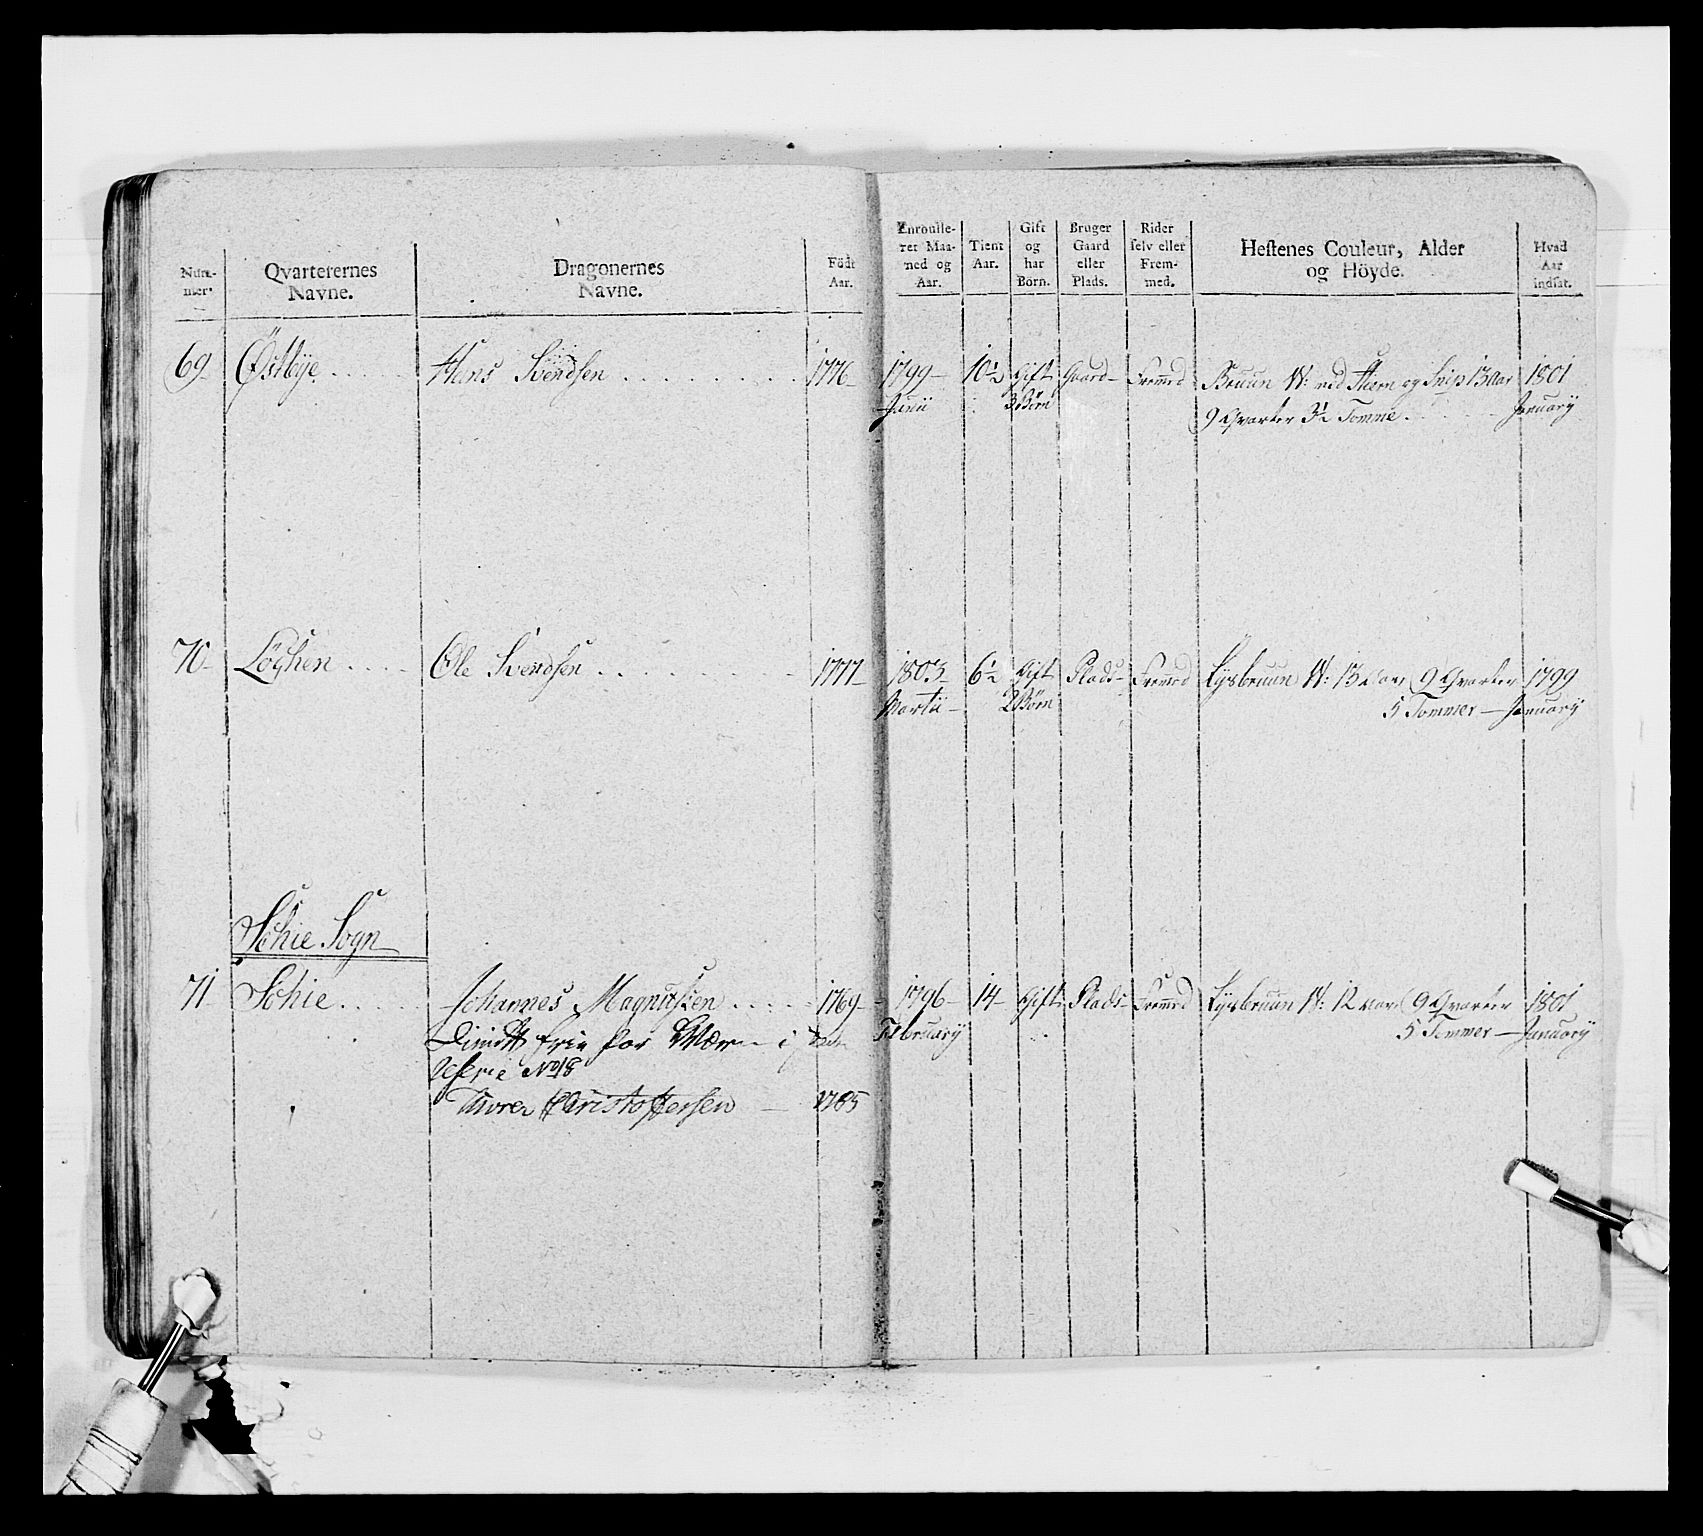 Num-mer. Qvarterernes Navne. Dragonernes Navne. Födt Aar. Enroulle-ret Maa-ned og Aar. Tient Aar. Gift og har Börn. Bruger Gaard eller Plads. Rider selv eller Frem-med. Hestenes Couleur, Alder og Höyde. Hvad Aar indsat.
69 Østbye Hans Svendsen 1776 1799 10½ Gift Gaard Fremed Bruun W: med Stiern og Snip 13 Aar 1801
Junii 3 Børn 9 Qvarter 3½ Tomme January
70 Løghen Ole Svendsen 1777 1803 6½ Gift Plads Fremed Lysbruun W: 13 Aar 9 Qvarter 1799
Martii 2 Børn 5 Tommer January
Schie Sogn
71 Schie Johannes Magnussen 1769 1796 14 Gift Plads Fremed Lysbruun W: 12 Aar 9 Qvarter 1801
Dimitt frie for Wærn i February 5 Tommer January
No 18
Christoffersen 1785